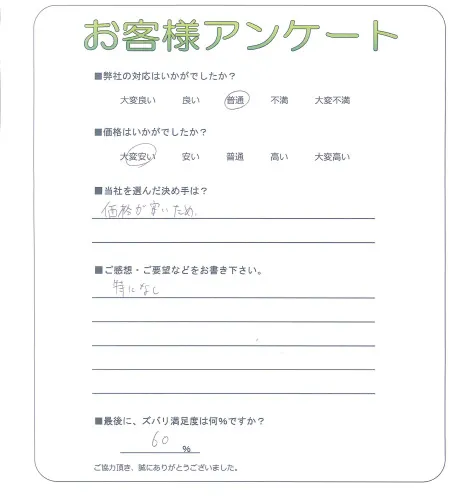 お客様アンケート
■弊社の対応はいかがでしたか？
大変良い 良い 普通 不満 大変不満
■価格はいかがでしたか？
大変安い 安い 普通 高い 大変高い
■当社を選んだ決め手は？
価格が安いため.
■ご感想・ご要望などをお書き下さい。
特になし
■最後に、ズバリ満足度は何％ですか？
60 ％
ご協力頂き、誠にありがとうございました。